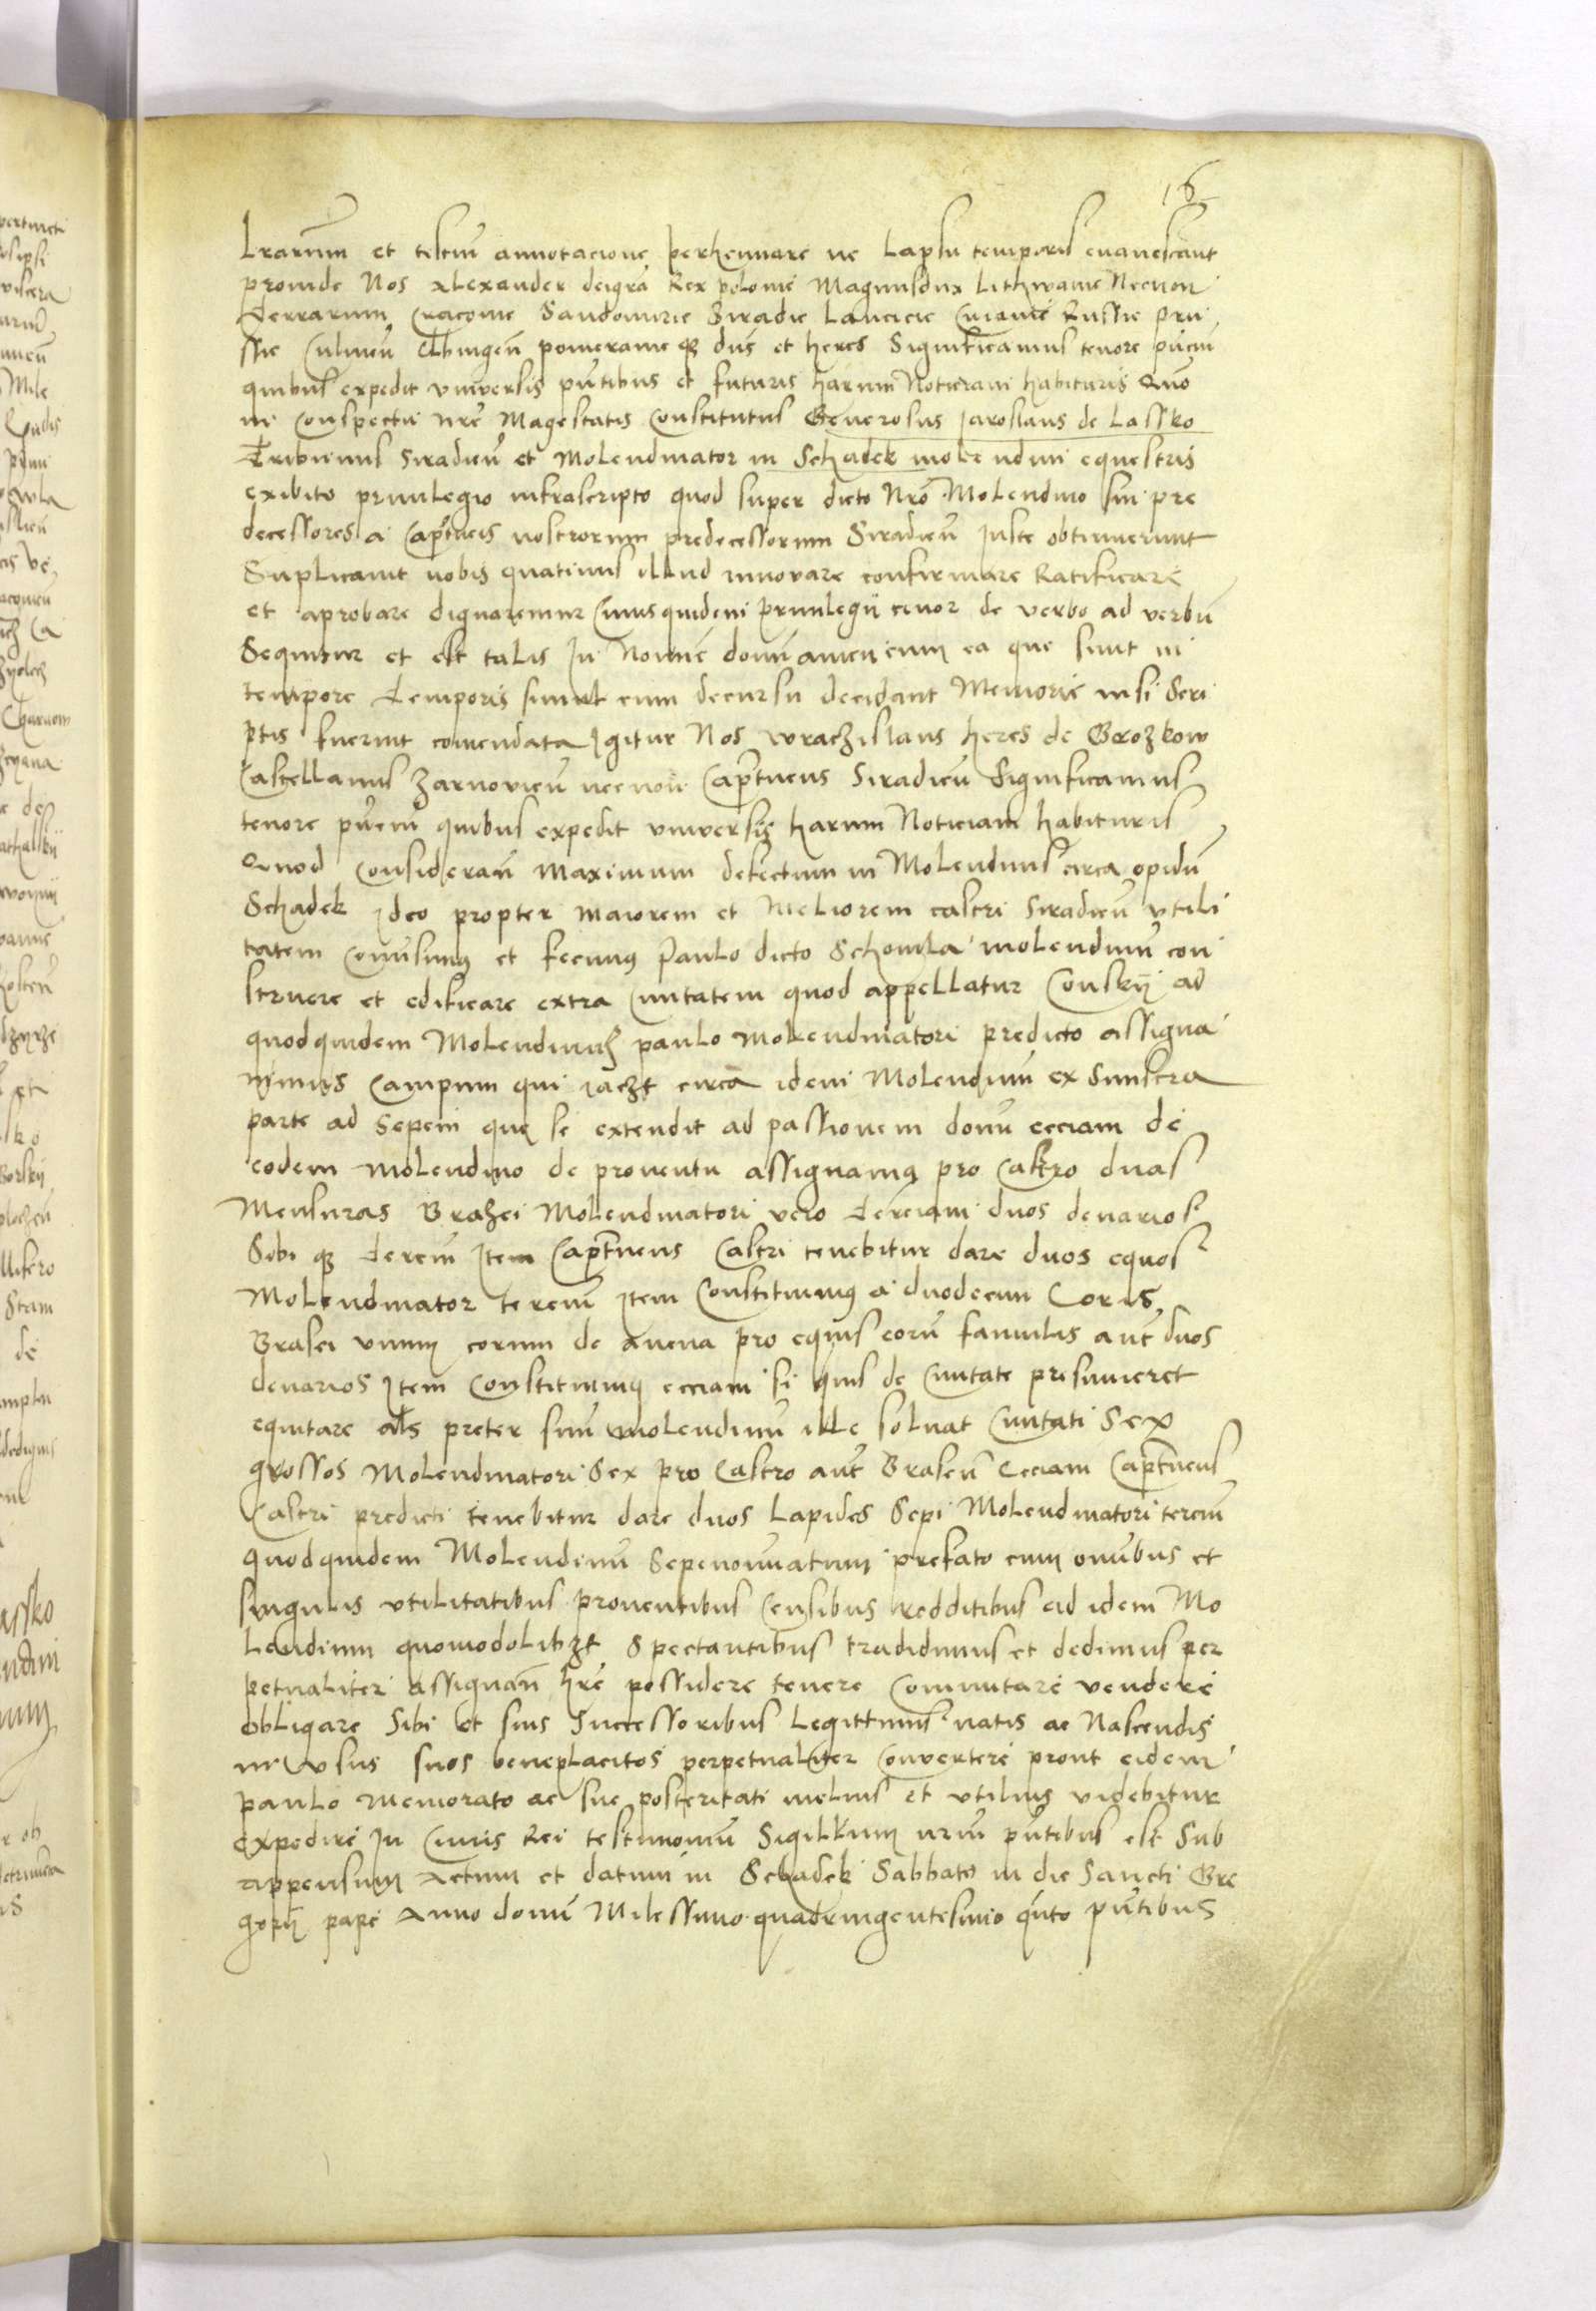 16
Lrarum et testiu annotacione perhennare ne Lapsu temporis evanescant
proinde Nos Alexander dei gra Rex polonie Magnusdux Lithwanie Necnon
Terrarum Cracovie Sandomirie Siradie Lancicie Cuiavie Russie Pru
ssie Culmeñ Elbingeñ pomeranie q3 dns et heres Significamus tenore pñciu
quibus expedit universis pñtibus et futuris harum Noticiam habituris Quo
in Conspectu nre Magestatis Constitutus Generosus Jaroslaus de Lassko
Tribunus Siradieñ et Molendinator in Schadek molendini equestris
exibito privilegio infrascripto quod super dicto Nro Molendino sui pre
decessores a Captneis nostrorum predecessorum Siradieñ Juste obtinuerunt
Suplicavit nobis quatinus illud innovare confirmare Ratificare
et aprobare dignaremur Cuiusquidem privilegii tenor de verbo ad verbu
Sequitur et est talis In Nomine domi amen cum ea que sunt in
tempore temporis simul cum decursu decidant Memorie nisi Scri
ptis fuerint comendata Igitur Nos wrazislaus heres de Grozkow
Castellanus Zarnovieñ necnon Captneus Siradieñ Significamus
tenore pñciu quibus expedit universis harum Noticiam habituris
Quod Consideran Maximum defectum in Molendinis circa opidu
Schadek Ideo propter maiorem et Meliorem castri Siradieñ utili
tatem Comisimus et fecimus Paulo dicto Schowla molendinu con
struere et edificare extra Civitatem quod appellatur Conskij ad
quodquidem Molendinu paulo molendinatori predicto assigna
vimus Campum qui iacet circa idem Molendinu ex sinistra
parte ad Sepem que se extendit ad passionem domi eciam de
eodem molendino de proventu assignamus pro Castro duas
Mensuras Brazei Molendinatori vero terciam duos denarios
Sibi q3 terciu Item Captneus Castri tenebitur dare duos equos
Molendinator terciu Item Constituimus a duodecim Coris
Brasei unum corum de Avena pro equis eoru famulis aut duos
denarios Item Constituimus eciam si quis de Civitate presumeret
equitare als preter sum molendinu ille solvat Civitati Sex
grossos Molendinatori Sex pro Castro aut Braseu Eciam Captneus
Castri predicti tenebitur dare duos Lapides Sepi Molendinatori terciu
Quodquidem Molendinu Sepenominatum prefato cum omibus et
singulis utilitatibus proventibus Censibus redditibus ad idem Mo
Lendinum quomodolibzt Spectantibus tradidimus et dedimus per
petualiter assignan hre possidere tenere Commutare vendere
obligare Sibi et suis Successoribus Legittimis natis ac Nascendis
in Usus suos beneplacitos perpetualiter Convertere prout eidem
Paulo Memorato ac sue posteritati melius et utilius videbitur
expedire In Cuius Rei testimoniu Sigillum nrm pñtibus est Sub
appensum Actum et datum in Schadek Sabbato in die Sancti Gre
gorii pape Anno domi Milessimo quadringentesimo qnto pñtibus